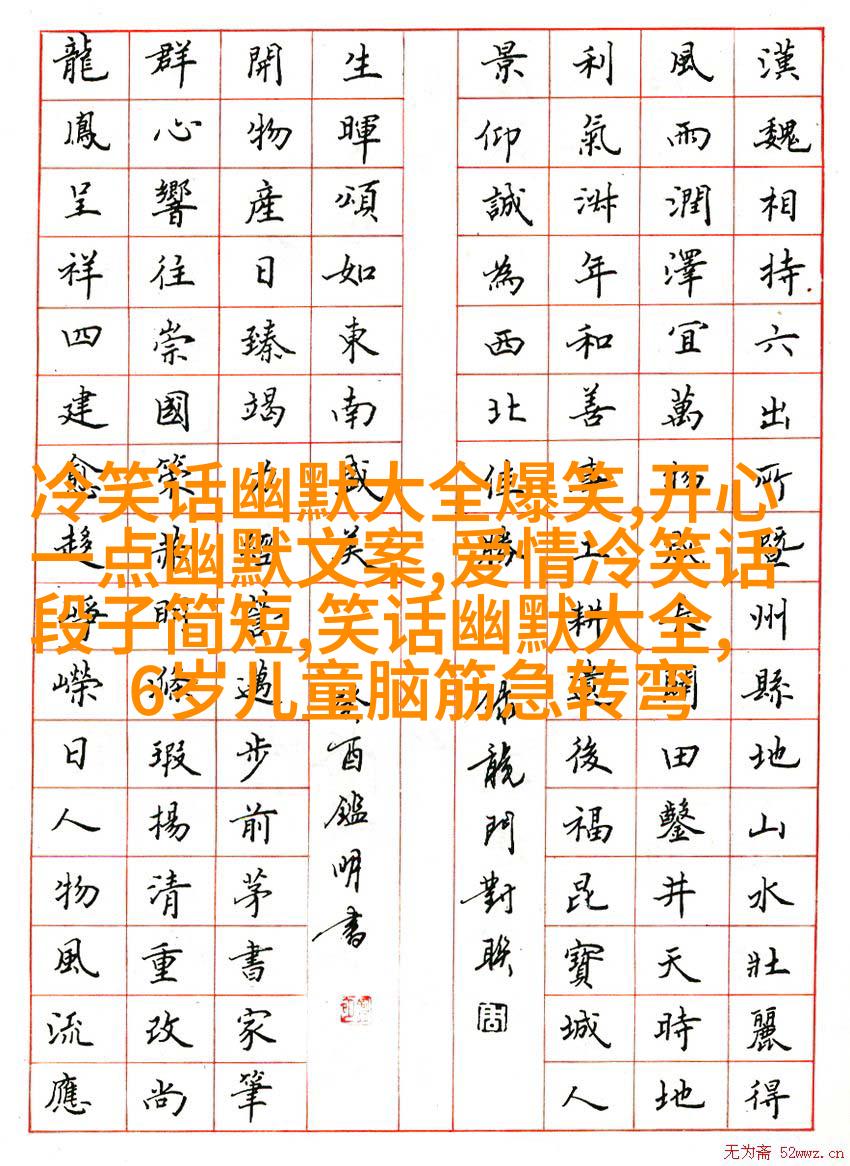 漢魏相持六出所暨州縣地山水壯麗得
風雨潤澤宜萬物田鑿井天時地
利氣年和善事工耕遺後福昆寶城人
景仰誠為西北佳勝
録龍門對聯
生暉頌如東南盛美
癸酉鑑明書
開物產日臻竭力經營邁步前茅書家筆
群心響往崇國策時滌瑕揚清重改尚
龍鳳呈祥四建愈趨崢嶸日人物風流應
冷笑话幽默大全爆笑,开心
一点幽默文案,爱情冷笑话
段子简短,笑话幽默大全,
6岁儿童脑筋急转弯
无为斋 52wwz.cn